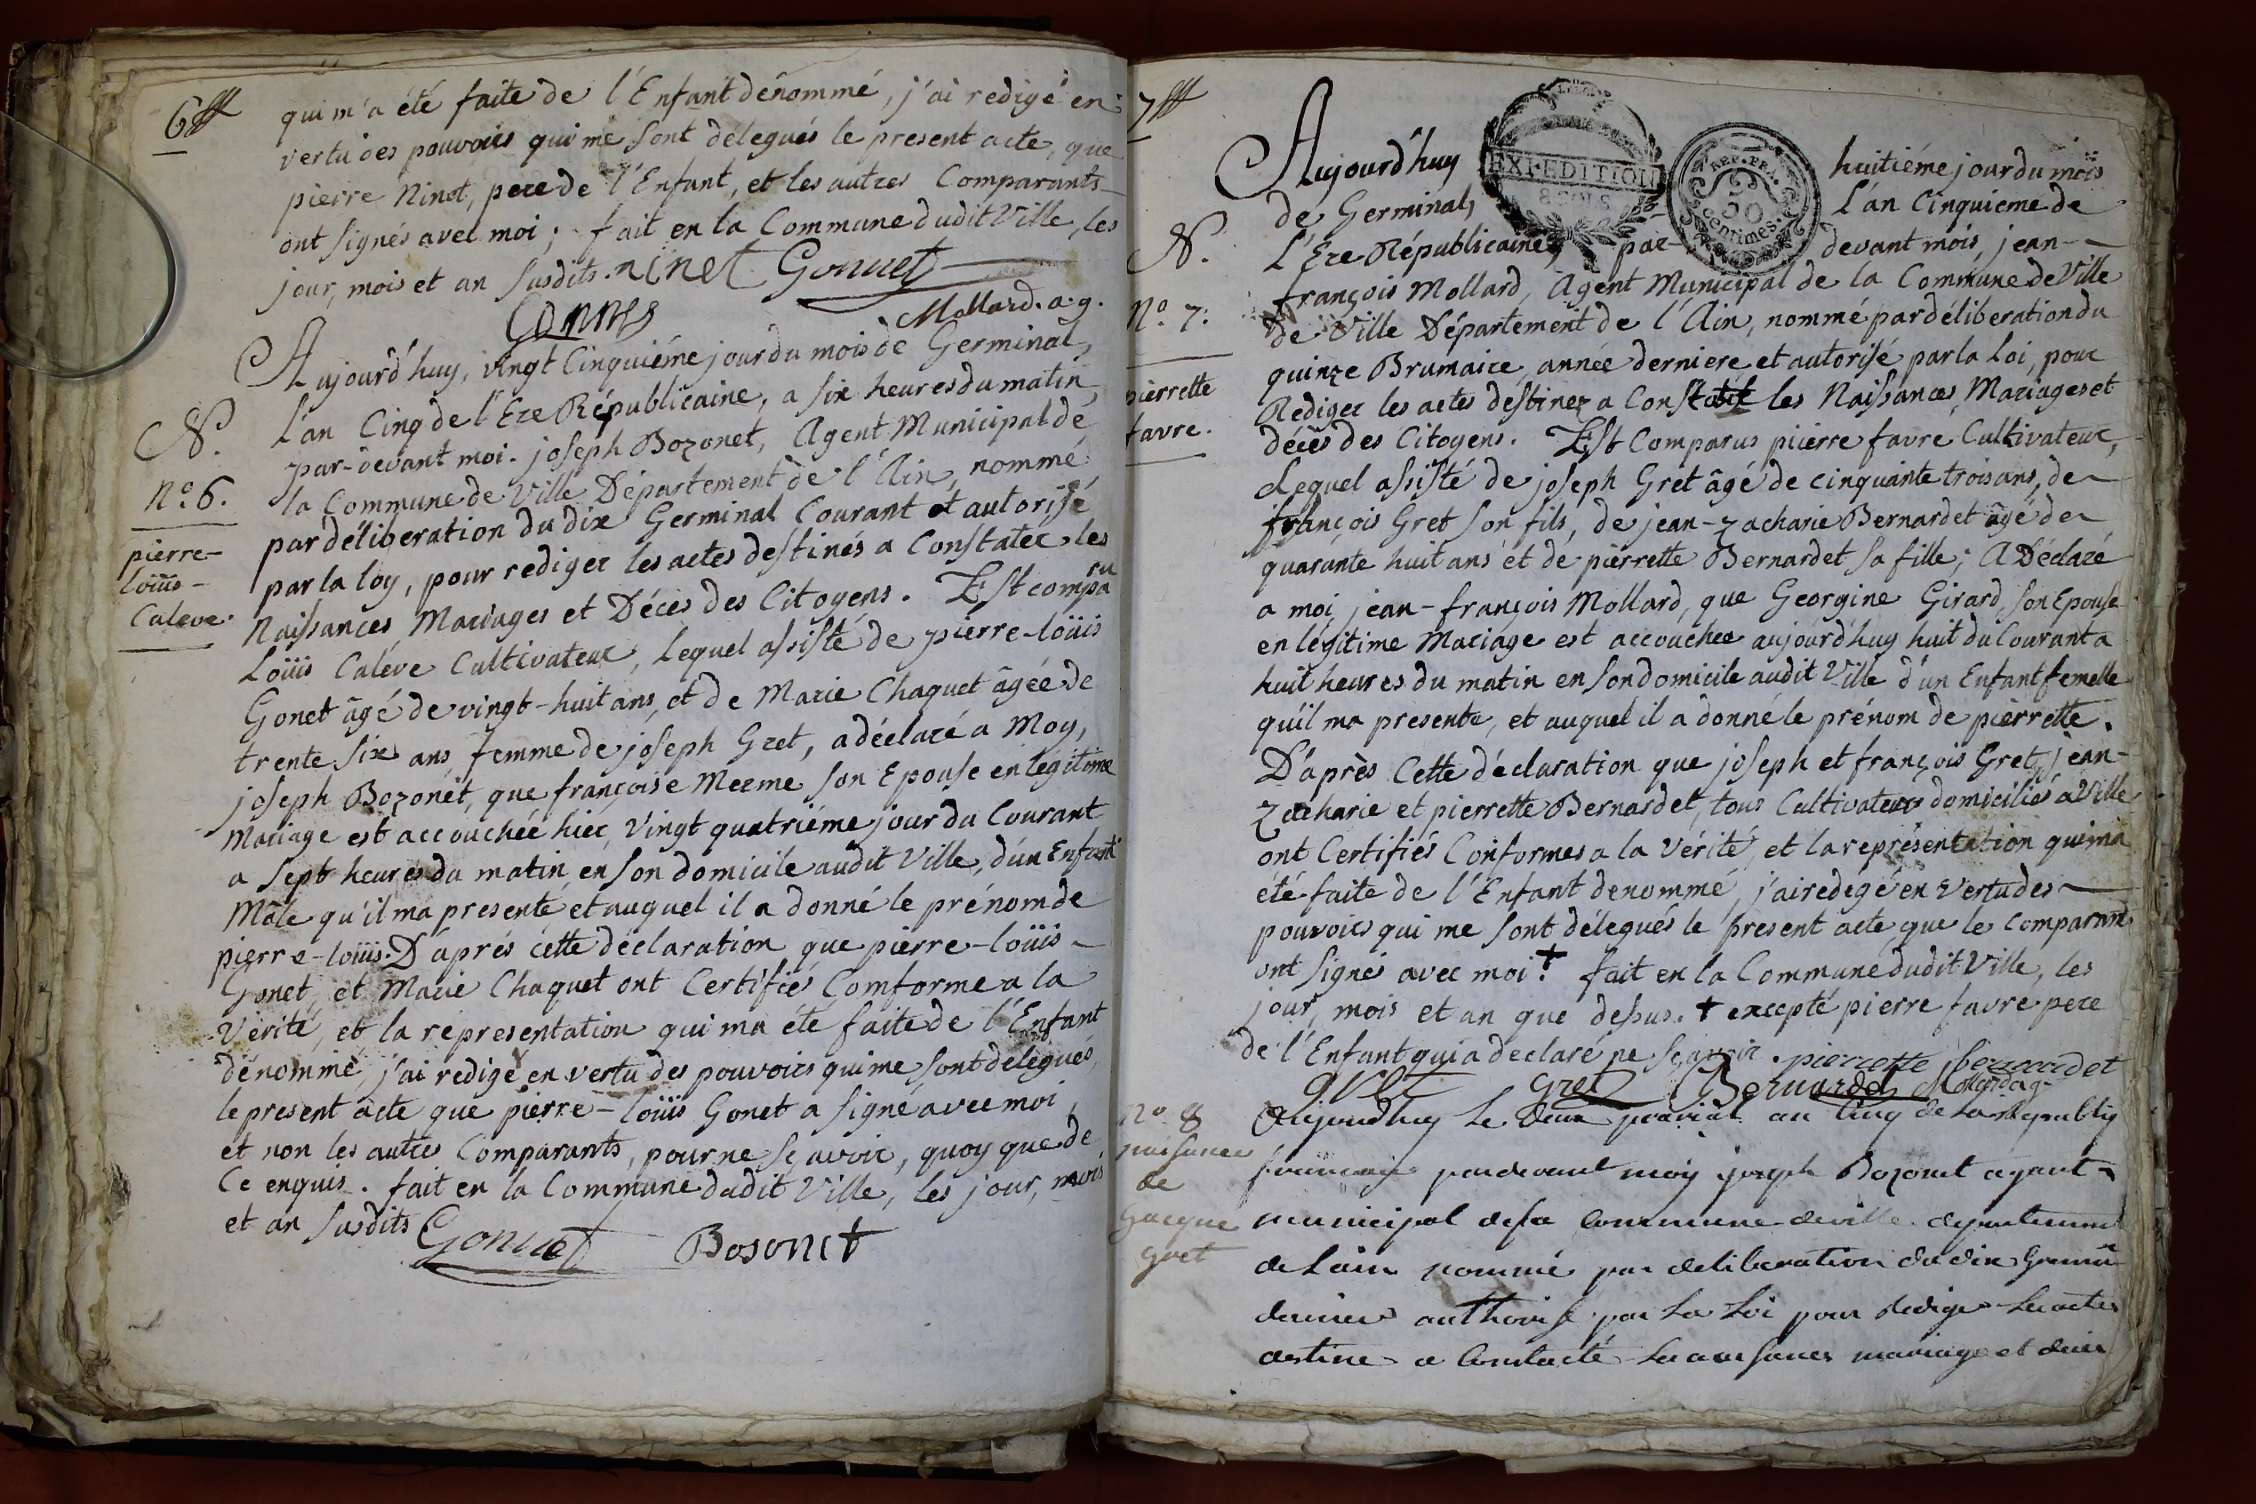 6
qui m'a été faite de l'Enfant dénommé, j'ai redigé en
vertu des pouvoirs qui me sont délegués le present acte, que
pierre Ninet, pere de l'Enfant, et les autres Comparants
ont signés avec moi; fait en la Commune dudit Ville, les
jour, mois et an susdits. ninet Gonnet
Mollard. a. g.
Aujourd'huy, vingt Cinquiéme jour du mois de Germinal,
L'an Cinq de l'Ere Républicaine, a six heures du matin,
par-devant moi. joseph Bozonet, Agent Municipal de
la Commune de Ville Département de l'Ain, nommé
par déliberation du dix Germinal Courant et autorisé
par la loy, pour rediger les actes destinés a Constater les
Naissances, Mariages et Décès des Citoyens. Est comparu
Loüis Caléve Cultivateur, Lequel assisté de pierre-loüis
Gonet âgé de vingt-huit ans, et de Marie Chaquet âgée de
trente six ans, femme de joseph Gret, a déclaré a Moy,
joseph Bozonet, que françoise Merme son Epouse en légitime
Mariage est accouchée hier, Vingt quatriéme jour du Courant
a sept heures du matin en son domicile audit Ville, d'un Enfant
Mâle qu'il ma presenté et auquel il a donné le prénom de
pierre-loüis. D'aprés cette déclaration que pierre-loüis
Gonet, et Marie Chaquet ont Certifié Comforme a la
Vérité, et la representation qui ma été faite de l'Enfant
dénommé, j'ai redigé en vertu des pouvoirs qui me sont delegués,
le present acte que pierre-loüis Gonet a signé avec moi,
et non les autres Comparants, pour ne sçavoir, quoy que de
Ce enquis. fait en la Commune dudit Ville, les jour, mois
et an susdits Gonnet Bosonet
N.
No. 6.
pierre-
loüis-
Caleve.
7
Aujourd'huy huitiéme jour du mois
de Germinal, L'an Cinquieme de
L'Ere Républicaine, par- devant mois, jean-
françois Mollard, Agent Municipal de la Commune de Ville
de Ville Département de l'Ain, nommé par déliberation du
quinze Brumaire, année derniere et autorisé par la Loi, pour
Rediger les actes destinez a Constater les Naissances, Mariages et
décès des Citoyens. Est Comparus pierre favre Cultivateur,
Lequel assisté de joseph Gret âgé de cinquante trois ans, de
françois Gret son fils, de jean-zacharie Bernardet âgé de
quarante huit ans et de pierrette Bernardet sa fille; A Déclaré
a moi, jean-françois Mollard, que Georgine Girard, son Epouse
en légitime Mariage est accouchée aujourd'huy huit du Courant a
huit heures du matin en son domicile audit Ville d'un Enfant femelle
qu'il ma presente, et auquel il a donné le prénom de pierrette.
D'après Cette déclaration que joseph et françois Gret, jean-
zacharie et pierrette Bernardet, tous Cultivateurs domiciliés a Ville
ont Certifiés Conformes a la Vérité, et la représentation qui ma
été faite de l'Enfant denommé, j'ai redégé en Vertu des
pouvoirs qui me sont délegués le present acte que les Comparants
ont signés avec moi. + fait en la Commune dudit Ville, les
jour, mois et an que dessus. + excepté pierre favre pere
de l'Enfant qui a declaré ne sçavoir. pierrette bernardet
Gret Bernardet Mollard ag.
N.
No. 7.
pierrette
favre.
EXPEDITION
REP. FRA.
50
centimes.
Aujourdhuy Le deux prairial an Cinq de La Republiq
francaise pardevant moy joseph Bozonet agent
municipal de la Commune de ville departement
de Lain nommé par deliberation du dix Germinal
dernier authorisé par La Loi pour Rediger Les actes
destine a Constaté Les naisances mariage et deces
No. 8
naisance
de
Gret